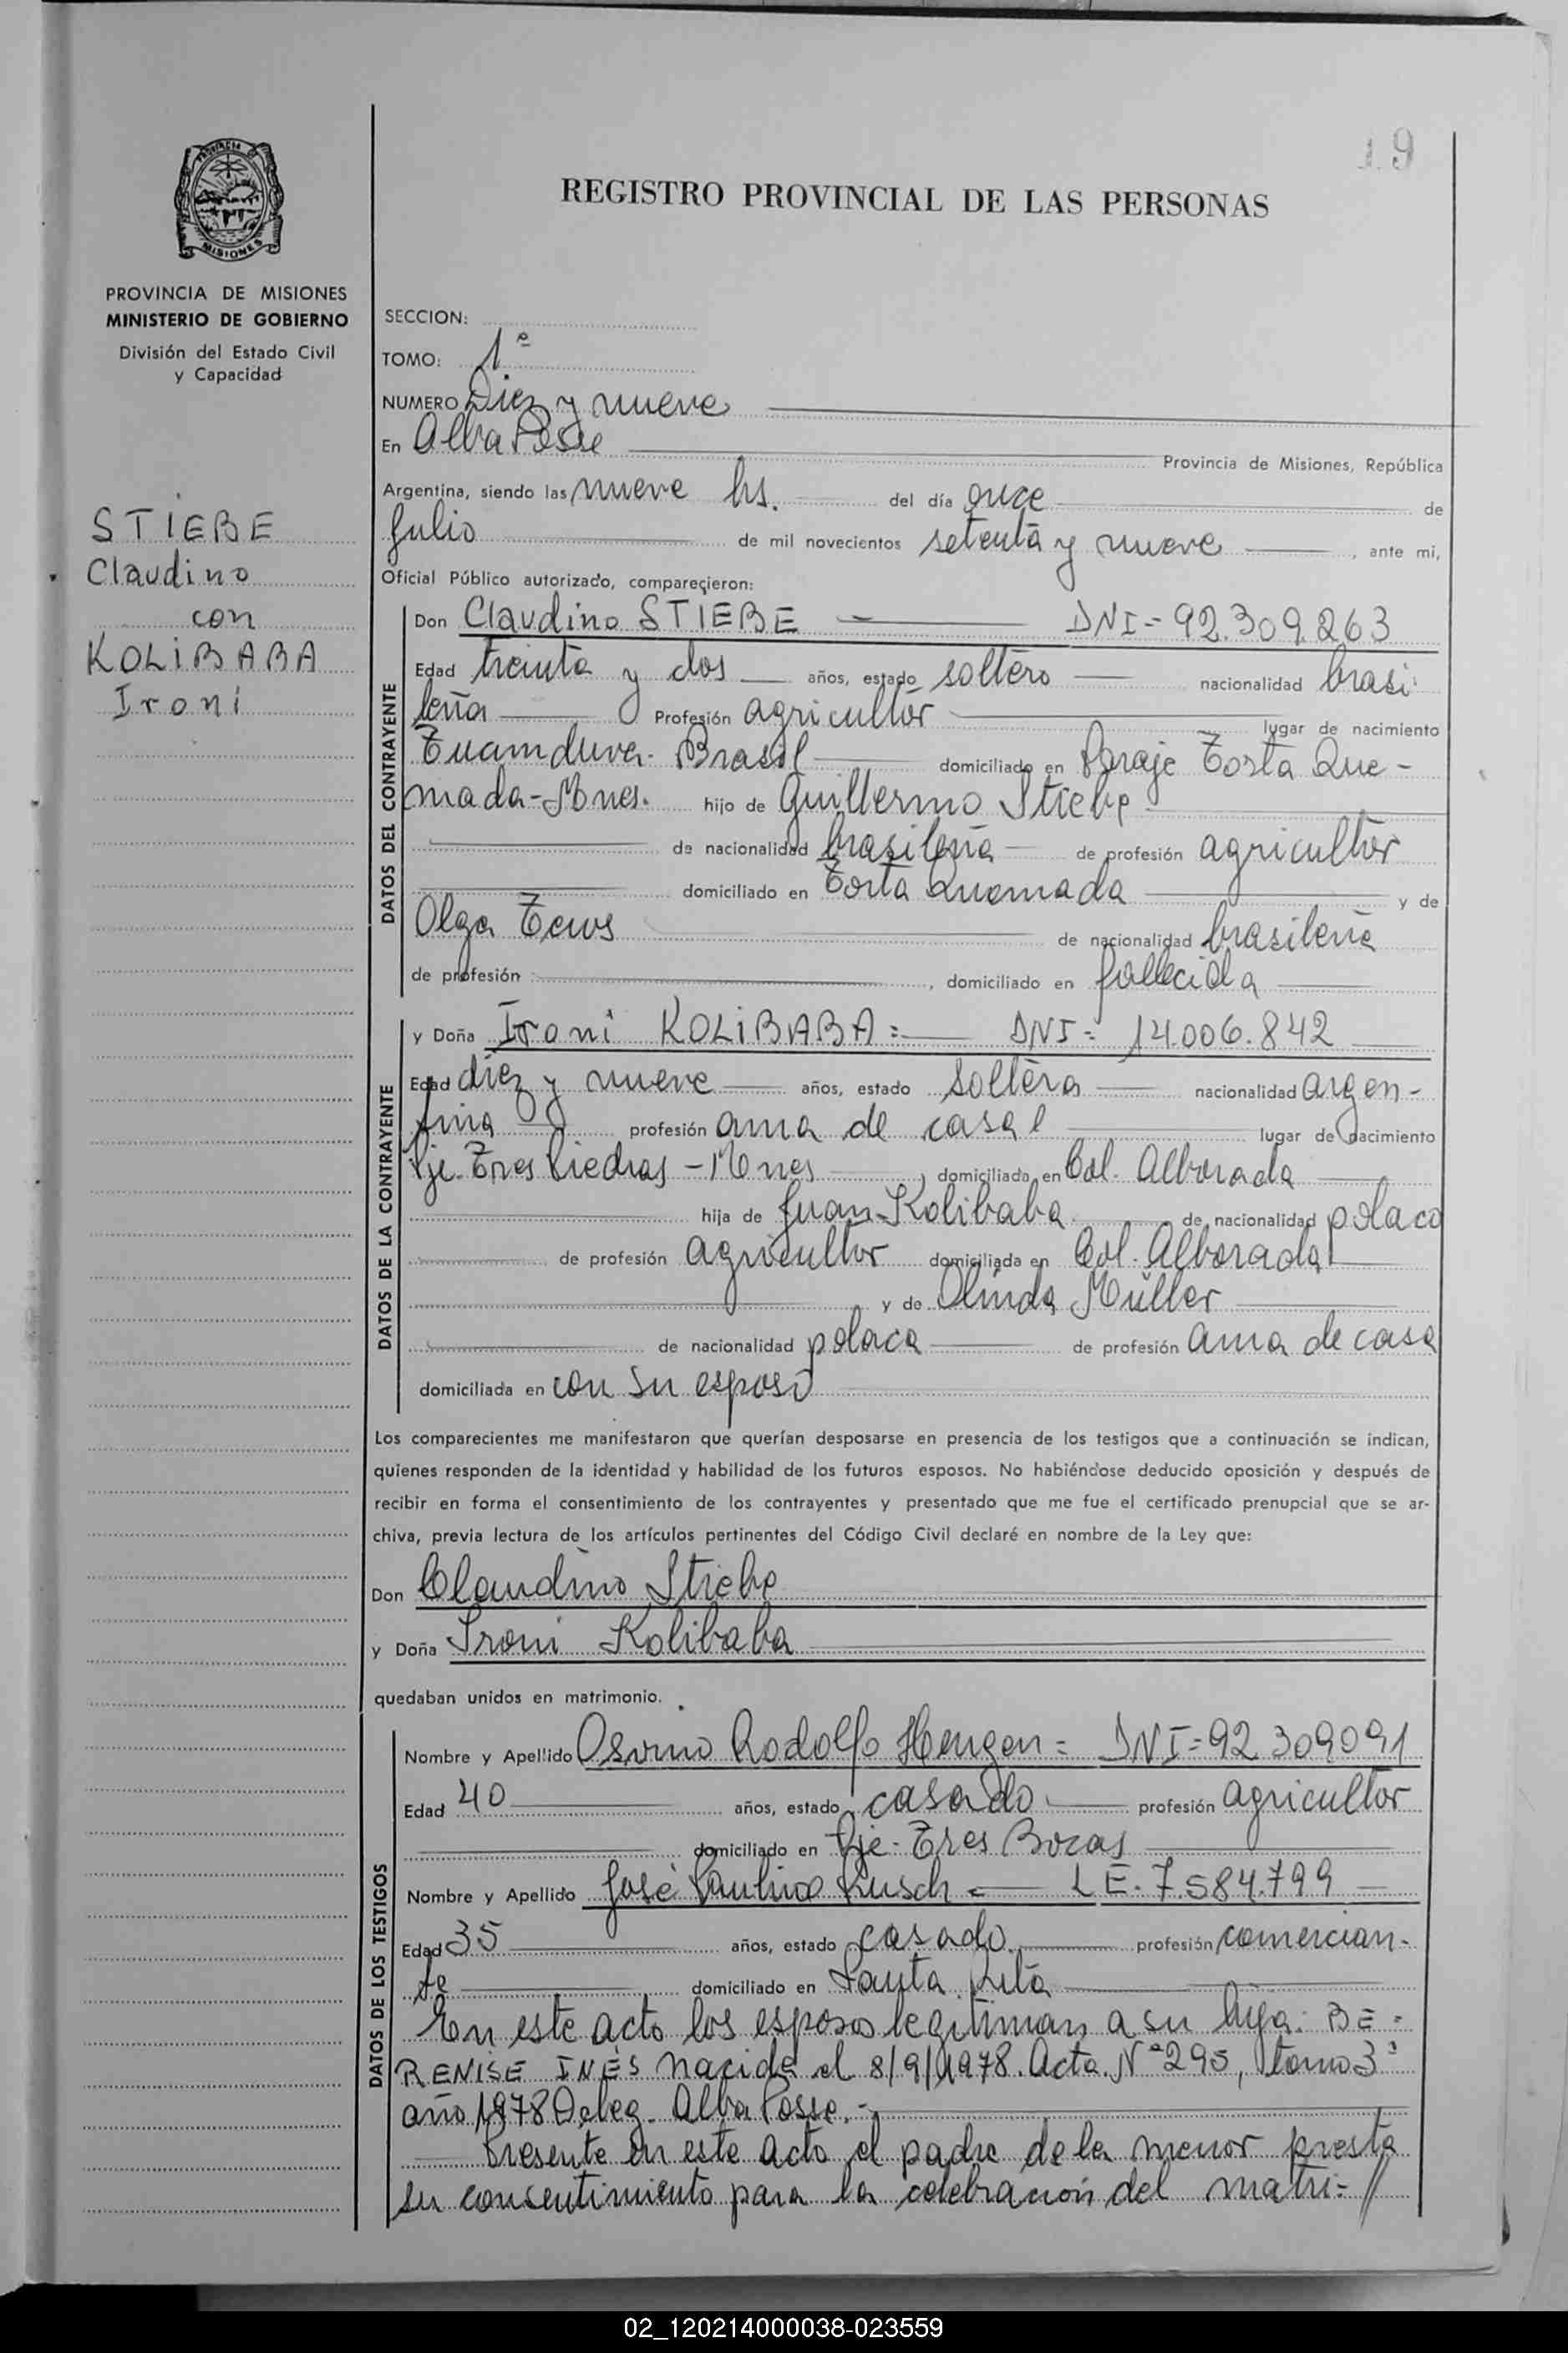 19
REGISTRO PROVINCIAL DE LAS PERSONAS
PROVINCIA DE MISIONES
MINISTERIO DE GOBIERNO
División del Estado Civil
y Capacidad
STIEBE
Claudino
con
KOLIBABA
Ironi
SECCION:
TOMO: 1º
NUMERO Diez y nueve
En Alba Posse
Provincia de Misiones, República
Argentina, siendo las nueve hs. del día once de
Julio de mil novecientos setenta y nueve, ante mi,
Oficial Público autorizado, comparecieron:
DATOS DEL CONTRAYENTE
Don Claudino STIEBE DNI=92.309.263
Edad treinta y dos años, estado soltero nacionalidad brasi
leña Profesión agricultor lugar de nacimiento
Tuamduva- Brasil domiciliado en Paraje Torta Que-
mada-Mnes. hijo de Guillermo Stiebe
de nacionalidad brasileña de profesión agricultor
domiciliado en Torta Quemada y de
Olga Tews de nacionalidad brasileña
de profesión, domiciliado en fallecida
DATOS DE LA CONTRAYENTE
y Doña Ironi KOLIBABA= DNI= 14.006.842
Edad diez y nueve años, estado soltera nacionalidad argen-
tina profesión ama de casa lugar de nacimiento
Pje. Tres Piedras -Mnes, domiciliada en Col. Alborada
hija de Juan Kolibaba de nacionalidad polaco
de profesión agricultor domiciliada en Col. Alborada
y de Olinda Müller
de nacionalidad polaca de profesión ama de casa
domiciliada en con su esposo
Los comparecientes me manifestaron que querían desposarse en presencia de los testigos que a continuación se indican,
quienes responden de la identidad y habilidad de los futuros esposos. No habiéndose deducido oposición y después de
recibir en forma el consentimiento de los contrayentes y presentado que me fue el certificado prenupcial que se ar-
chiva, previa lectura de los artículos pertinentes del Código Civil declaré en nombre de la Ley que:
Don Claudino Stiebe
y Doña Ironi Kolibaba
quedaban unidos en matrimonio.
DATOS DE LOS TESTIGOS
Nombre y Apellido Osvino Rodolfo Hengen= DNI=92.309091
Edad 40 años, estado casado profesión agricultor
domiciliado en Pje. Tres Bocas
Nombre y Apellido José Paulino Kusch = LE.7.584.799
Edad 35 años, estado casado profesión comercian-
te domiciliado en Santa Rita
En este acto los esposos legitiman a su hija: BE-
RENISE INÉS nacida el 8/9/1978. Acta Nº295, tomo 3º
año 1978 Deleg. Alba Posse.-
Presente en este acto el padre de la menor presta
su consentimiento para la celebración del matri=//
02_120214000038-023559